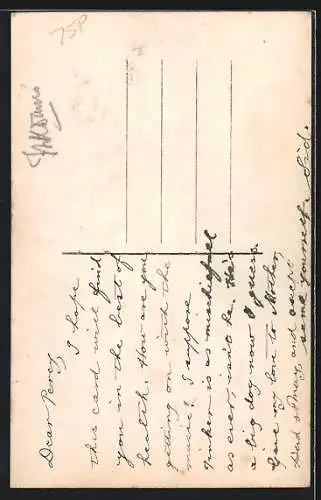 75P
Dear Percy,
I hope
this card will find
you in the best of
health. How are you
getting on with the
music? I suppose
Tinker is as mischiefull
as ever, isn't he. He's
a big dog now I guess.
Give my love to Mother,
Dad & May, and accept
same yourself. Sid.